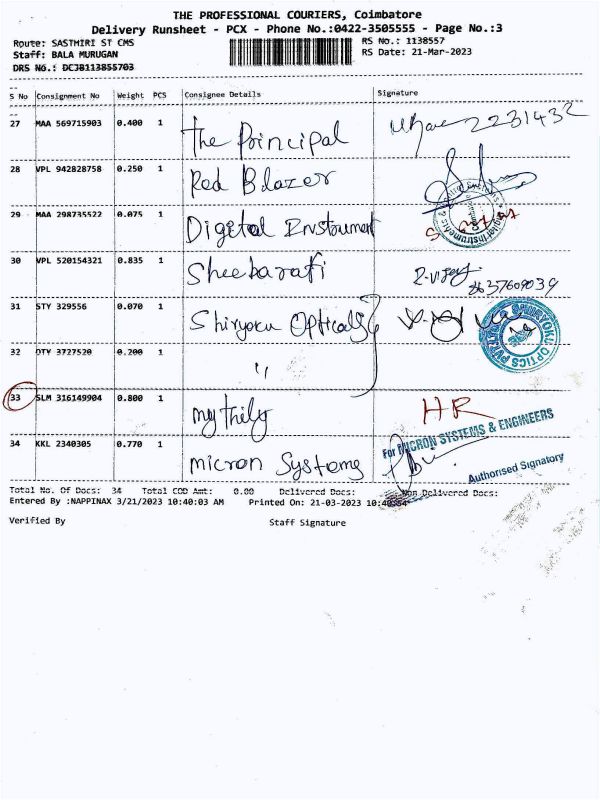 THE PROFESSIONAL COURIERS, Coimbatore
Delivery Runsheet - PCX - Phone No.:0422-3505555 - Page No.:3
Route: SASTHIRI ST CMS RS No.: 1138557
Staff: BALA MURUGAN RS Date: 21-Mar-2023
DRS No.: DCJB113855703
S No Consignment No Weight PCS Consignee Details Signature
27 MAA 569715903 0.400 1 The Principal 2231432
28 VPL 942828758 0.250 1 Red Blazer
29 MAA 298735522 0.075 1 Digital Instrument
30 VPL 520154321 0.835 1 Sheebarati R-vijay 8637609039
31 STY 329556 0.070 1 Shiryoku Opticals
32 DTY 3727520 0.200 1 "
33 SLM 316149904 0.800 1 mythily HR
34 KKL 2340305 0.770 1 micron Systems
For MICRON SYSTEMS & ENGINEERS
Authorised Signatory
Total No. Of Docs: 34 Total COD Amt: 0.00 Delivered Docs: Non Delivered Docs:
Entered By :NAPPINAX 3/21/2023 10:40:03 AM Printed On: 21-03-2023 10:40:54
Verified By Staff Signature